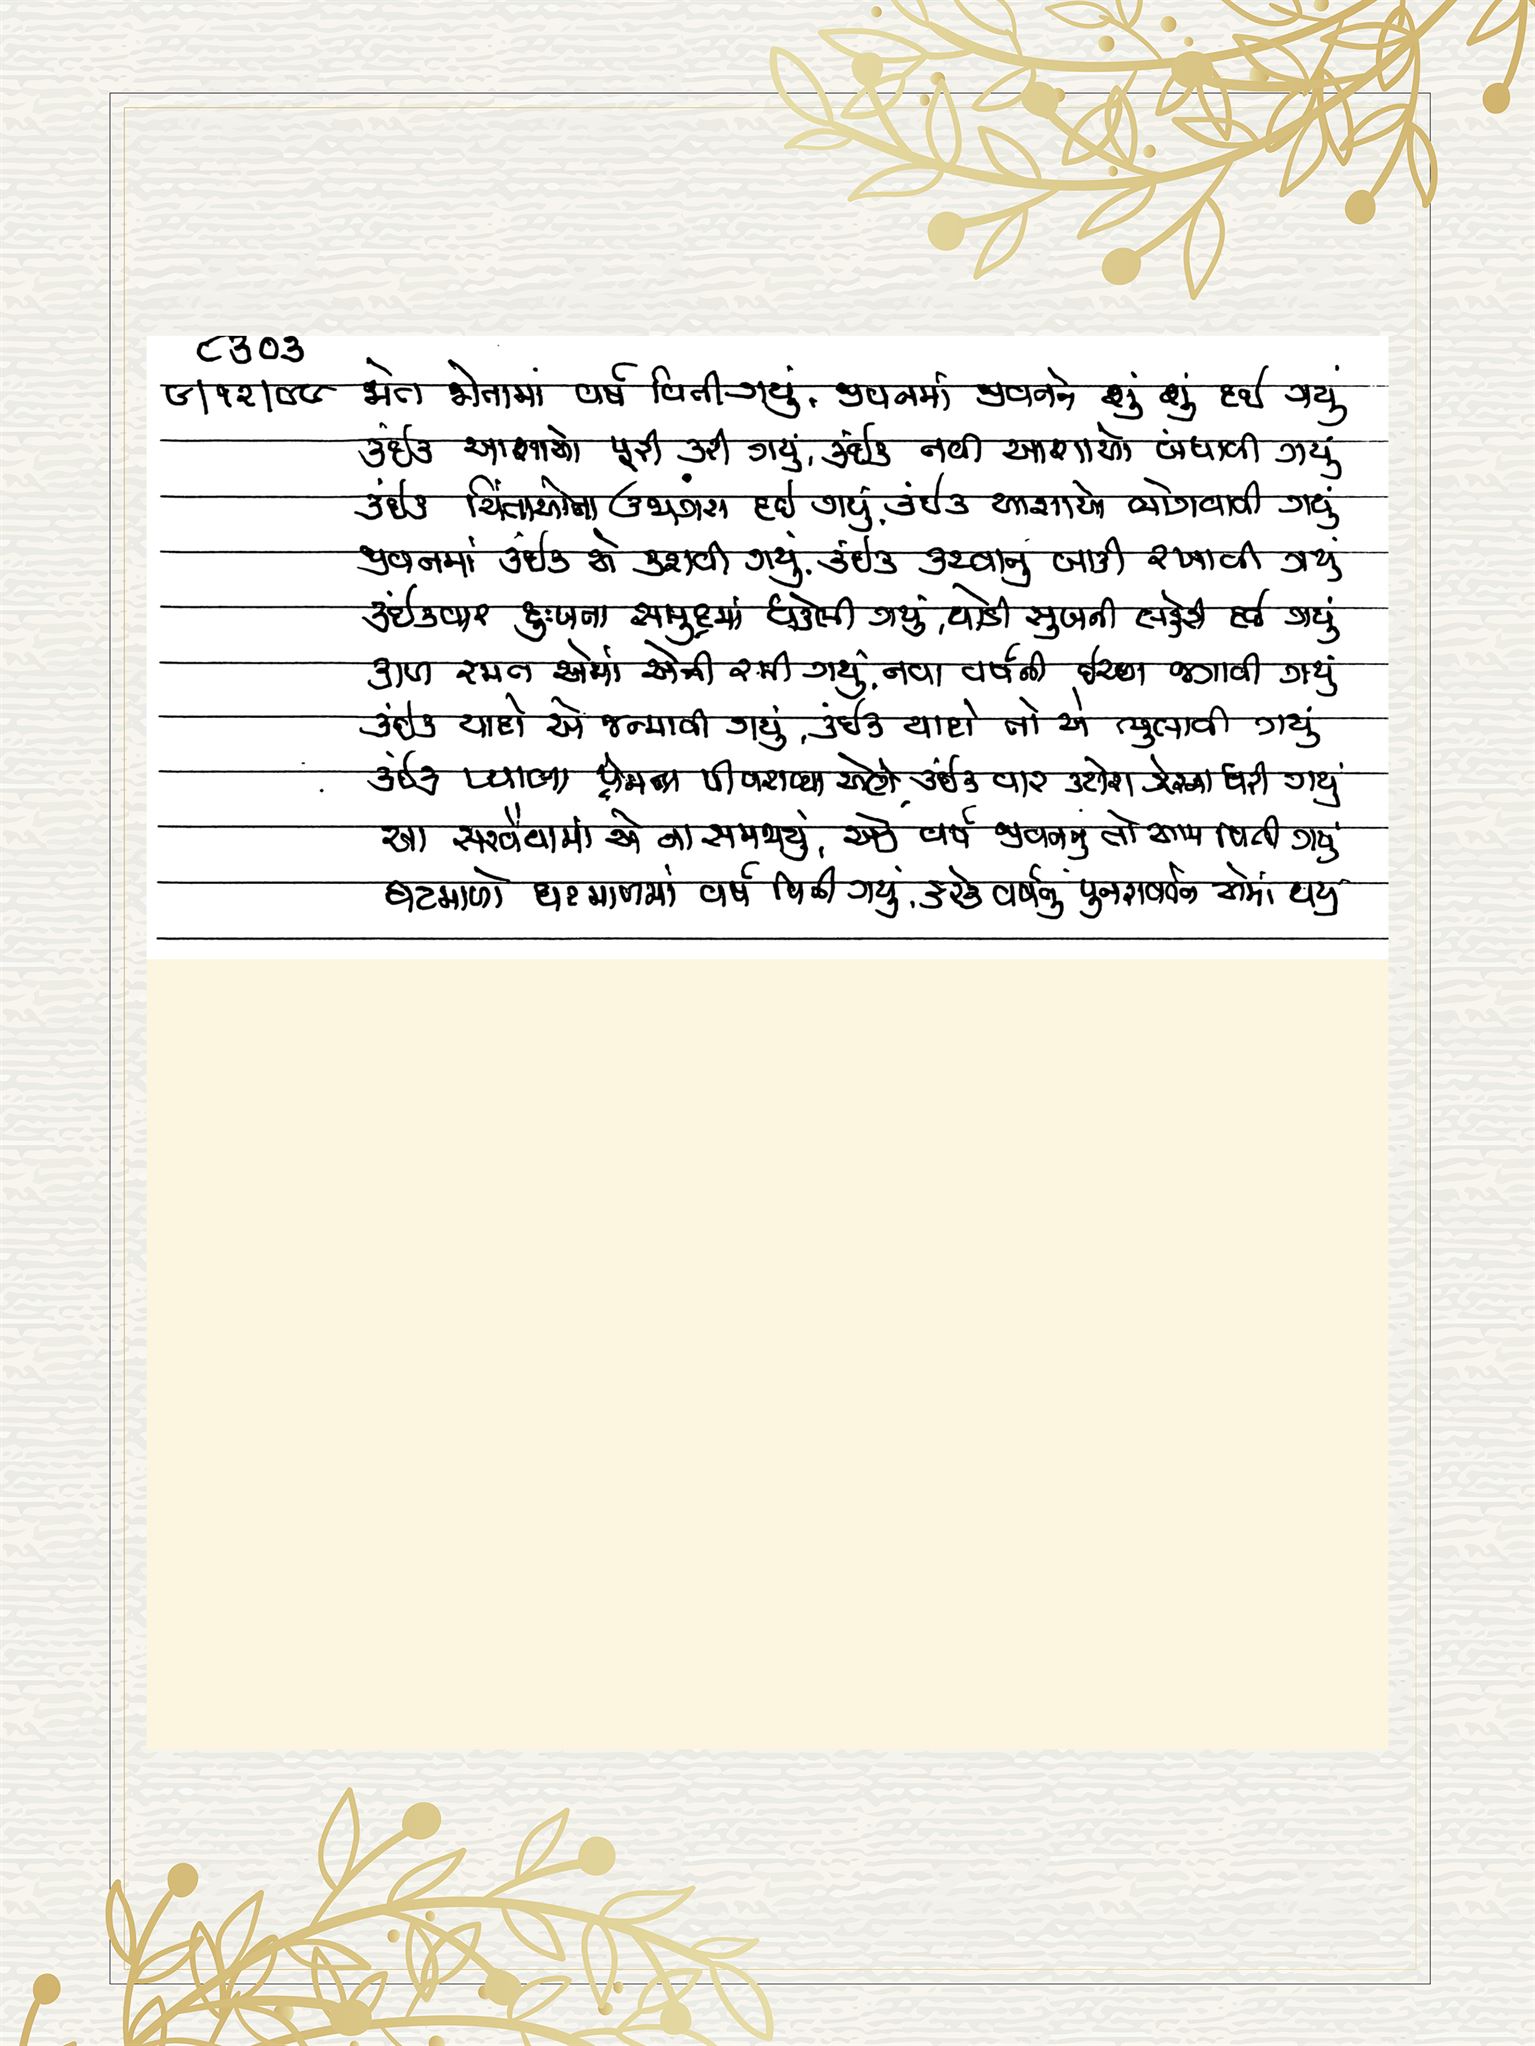 ૮૩૦૩
જોત જોતામાં વર્ષ વિતી ગયું, જીવનમાં જીવનને શું શું દઈ ગયું
કંઈક આશાઓ પૂરી કરી ગયું, કંઈક નવી આશાઓ બંધાવી ગયું
કંઈક ચિંતાઓના દઈ ગયું, કંઈક આશાઓ ભોગવાવી ગયું
જીવનમાં કંઈક એ કરાવી ગયું, કંઈક કરવાનું બાકી રખાવી ગયું
કંઈકવાર દુઃખના સમુદ્રમાં ધકેલી ગયું, થોડી સુખની લકેરી દઈ ગયું
કાળ રમત એમાં એની રમી ગયું, નવા વર્ષની ઇચ્છા જગાવી ગયું
કંઈક યાદો એ જન્માવી ગયું, કંઈક યાદો તો એ ભુલાવી ગયું
કંઈક પ્યાલા પ્રેમના પીવરાવ્યા એણે, કંઈક વાર કટોરા ધરી ગયું
આ સરવૈયામાં એ ના સમજાયું, એક વર્ષ જીવનનું તો આમ વિતી ગયું
ઘટમાળો ઘટમાળમાં વર્ષ વિતી ગયું, વર્ષનું પુનરાવર્તન એમાં થયું